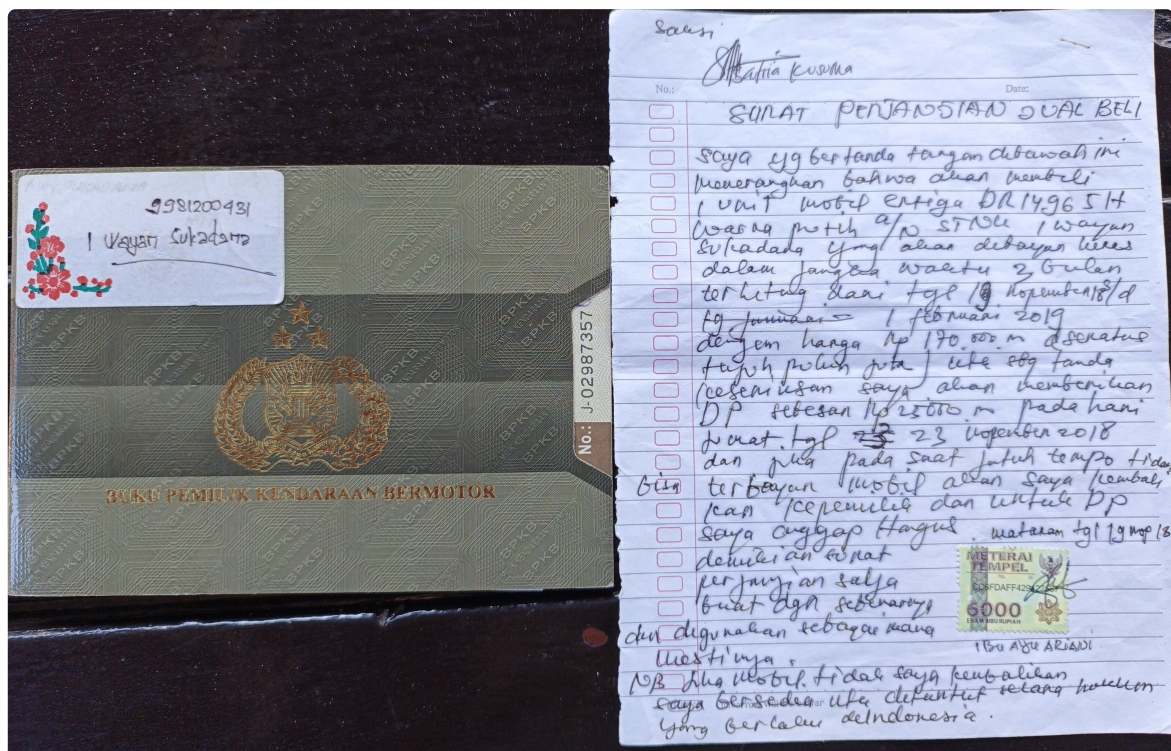 9981200431
I Wayan Sukadana
No.: J-02987357
BUKU PEMILIK KENDARAAN BERMOTOR
Saksi
Satria Kusuma
No.:
Date:
SURAT PERJANJIAN JUAL BELI
saya yg bertanda tangan dibawah ini
menerangkan bahwa akan membeli
1 unit mobil ertiga DR 1496 SH
warna putih a/n STNK I wayan
sukadana yang akan dibayar lunas
dalam jangka waktu 2 bulan
terhitung dari tgl 19 Nopember 18 s/d
tg Januari 1 februari 2019
dengan harga Rp 170.000.000 (seratus
tujuh puluh juta) utk sbg tanda
keseriusan saya akan memberikan
DP sebesar Rp 25.000.000 pada hari
jumat tgl 23 Nopember 2018
dan jika pada saat jatuh tempo tidak
bisa terbayar mobil akan saya kembali
kan kepemilik dan untuk DP
saya anggap Hangus. mataram tgl 19 nop 18
demikian surat
perjanjian saya
buat dgn sebenarnya
dan digunakan sebagai mana
mestinya.
METERAI
TEMPEL
6000
ENAM RIBU RUPIAH
IBU AYU ARIANI
NB jika mobil tidak saya kembalikan
saya bersedia utk dituntut
yang berlaku diIndonesia.